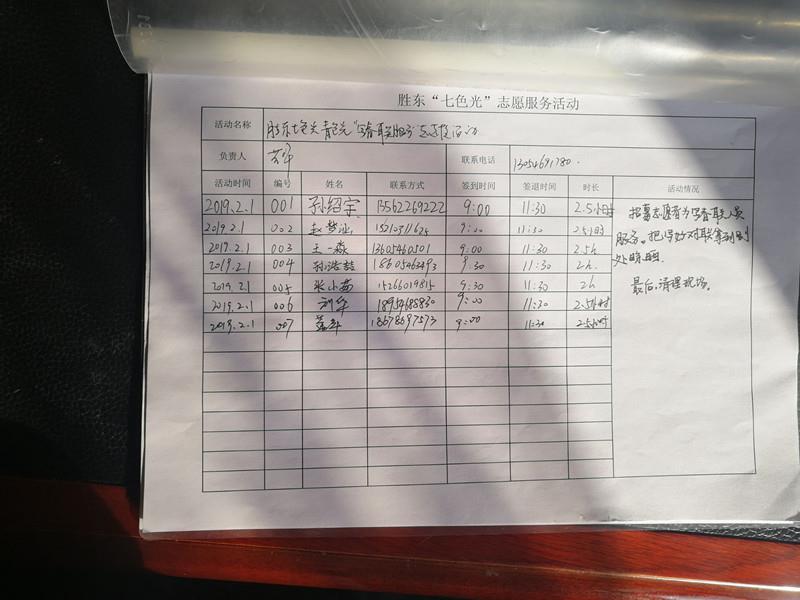 胜东“七色光”志愿服务活动
活动名称 胜东七色光青色光“写春联服务”志愿活动
负责人 联系电话 13054691780.
活动时间 编号 姓名 联系方式 签到时间 签退时间 时长 活动情况
2019.2.1 001 孙绍宇 13562269222 9:00 11:30 2.5小时
2019.2.1 002 赵梦 9:00 11:30 2.5小时
2019.2.1 003 王一淼 13605460501 9:00 11:30 2.5h
2019.2.1 004 孙浩喆 18605463493 9:30 11:30 2h.
2019.2.1 005 张小茹 15266019815 9:30 11:30 2h
2019.2.1 006 刘军 18954685830 9:00 11:30 2.5小时
2019.2.1 007 18678697573 9:00 11:30 2.5小时
招募志愿者为写春联人员
服务。把写好对联拿到别
处晾晒
最后,清理现场。